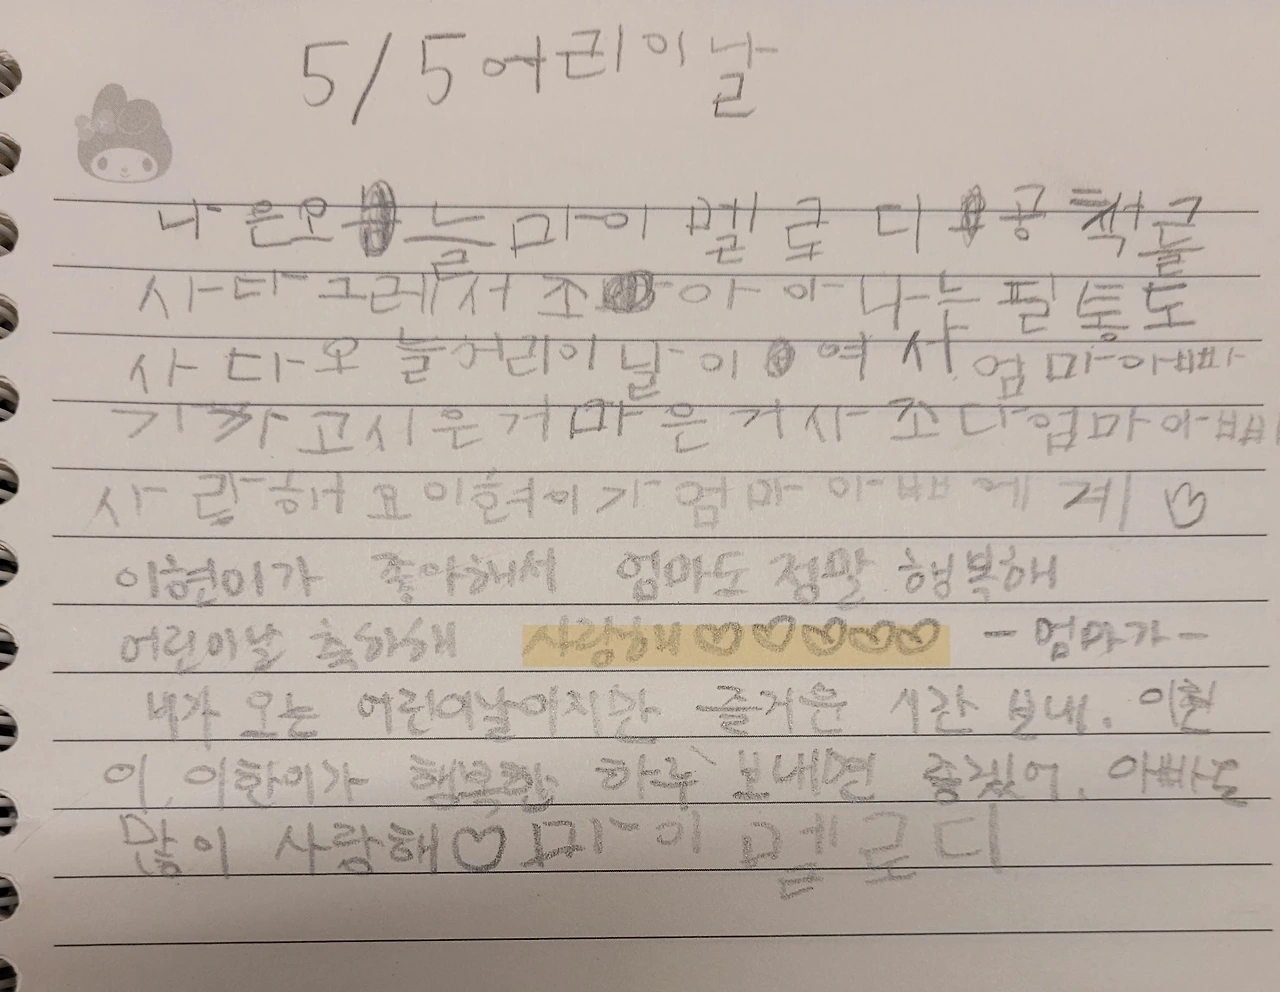 5/5 어린이날
나 은 오 늘 마 이 멜 로 디 공 책 을
사 다 그래서 조 아 아 나는 필통도
사 다 오 늘 어린이 날 이 여 사 엄마아빠
가 사 고 시 은 거 마 은 거 사 조 다 엄마아빠
사 랑 해 요 이현이가 엄마 아빠 에 게 ♡
이현이가 좋아해서 엄마도 정말 행복해
어린이날 축하해 사랑해 ♡♡♡♡♡ - 엄마가 -
내가 오는 어린이날이지만 즐거운 시간 보내. 이현
이, 이한이가 행복한 하루 보내면 좋겠어. 아빠도
많이 사랑해 ♡ 마 이 멜 로 디